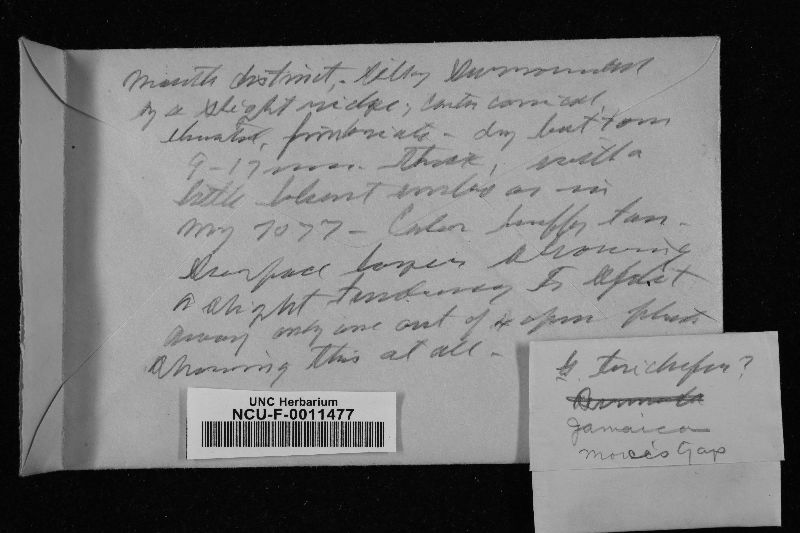 mouth distinct, silky surrounded
by a slight ridge; conic conical,
elevated, fimbriate - dry bottom
9-17 mm. thick, with a
little blunt umbo as in
my 7077 - Color buffy tan -
Surface layer showing
a slight tendency to split
away only one out of 4 spm. plants
showing this at all -
UNC Herbarium
NCU-F-0011477
G.
Bermuda
Jamaica
Morse's Gap